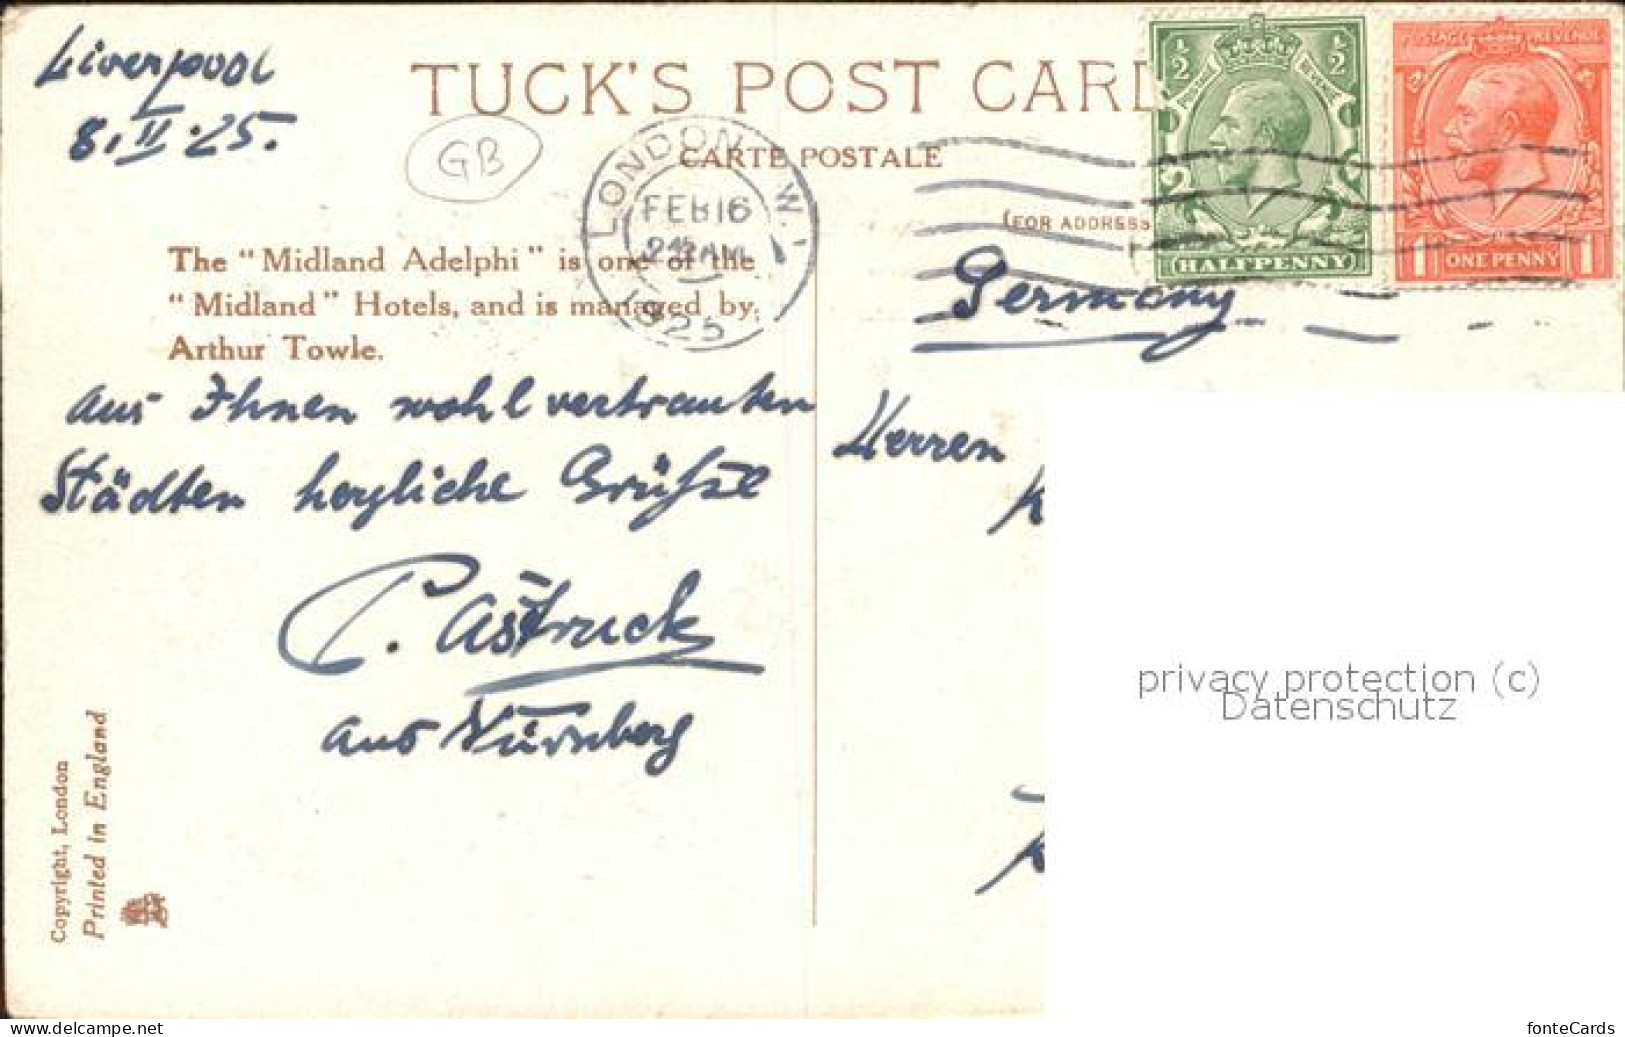 Liverpool
8. II. 25.
TUCK'S POST CARD
CARTE POSTALE
(FOR ADDRESS
GB
LONDON. W. 1
FEB 16
1925
½ ½
POSTAGE REVENUE
HALFPENNY
POSTAGE REVENUE
1 ONE PENNY 1
The "Midland Adelphi" is one of the
"Midland" Hotels, and is managed by
Arthur Towle.
aus Ihnen wohl vertrauten
Städten herzliche Grüsse
P. Astruck
aus Nürnberg
Germany
Herren
K
privacy protection (c)
Datenschutz
Copyright, London
Printed in England
www.delcampe.net
fonteCards